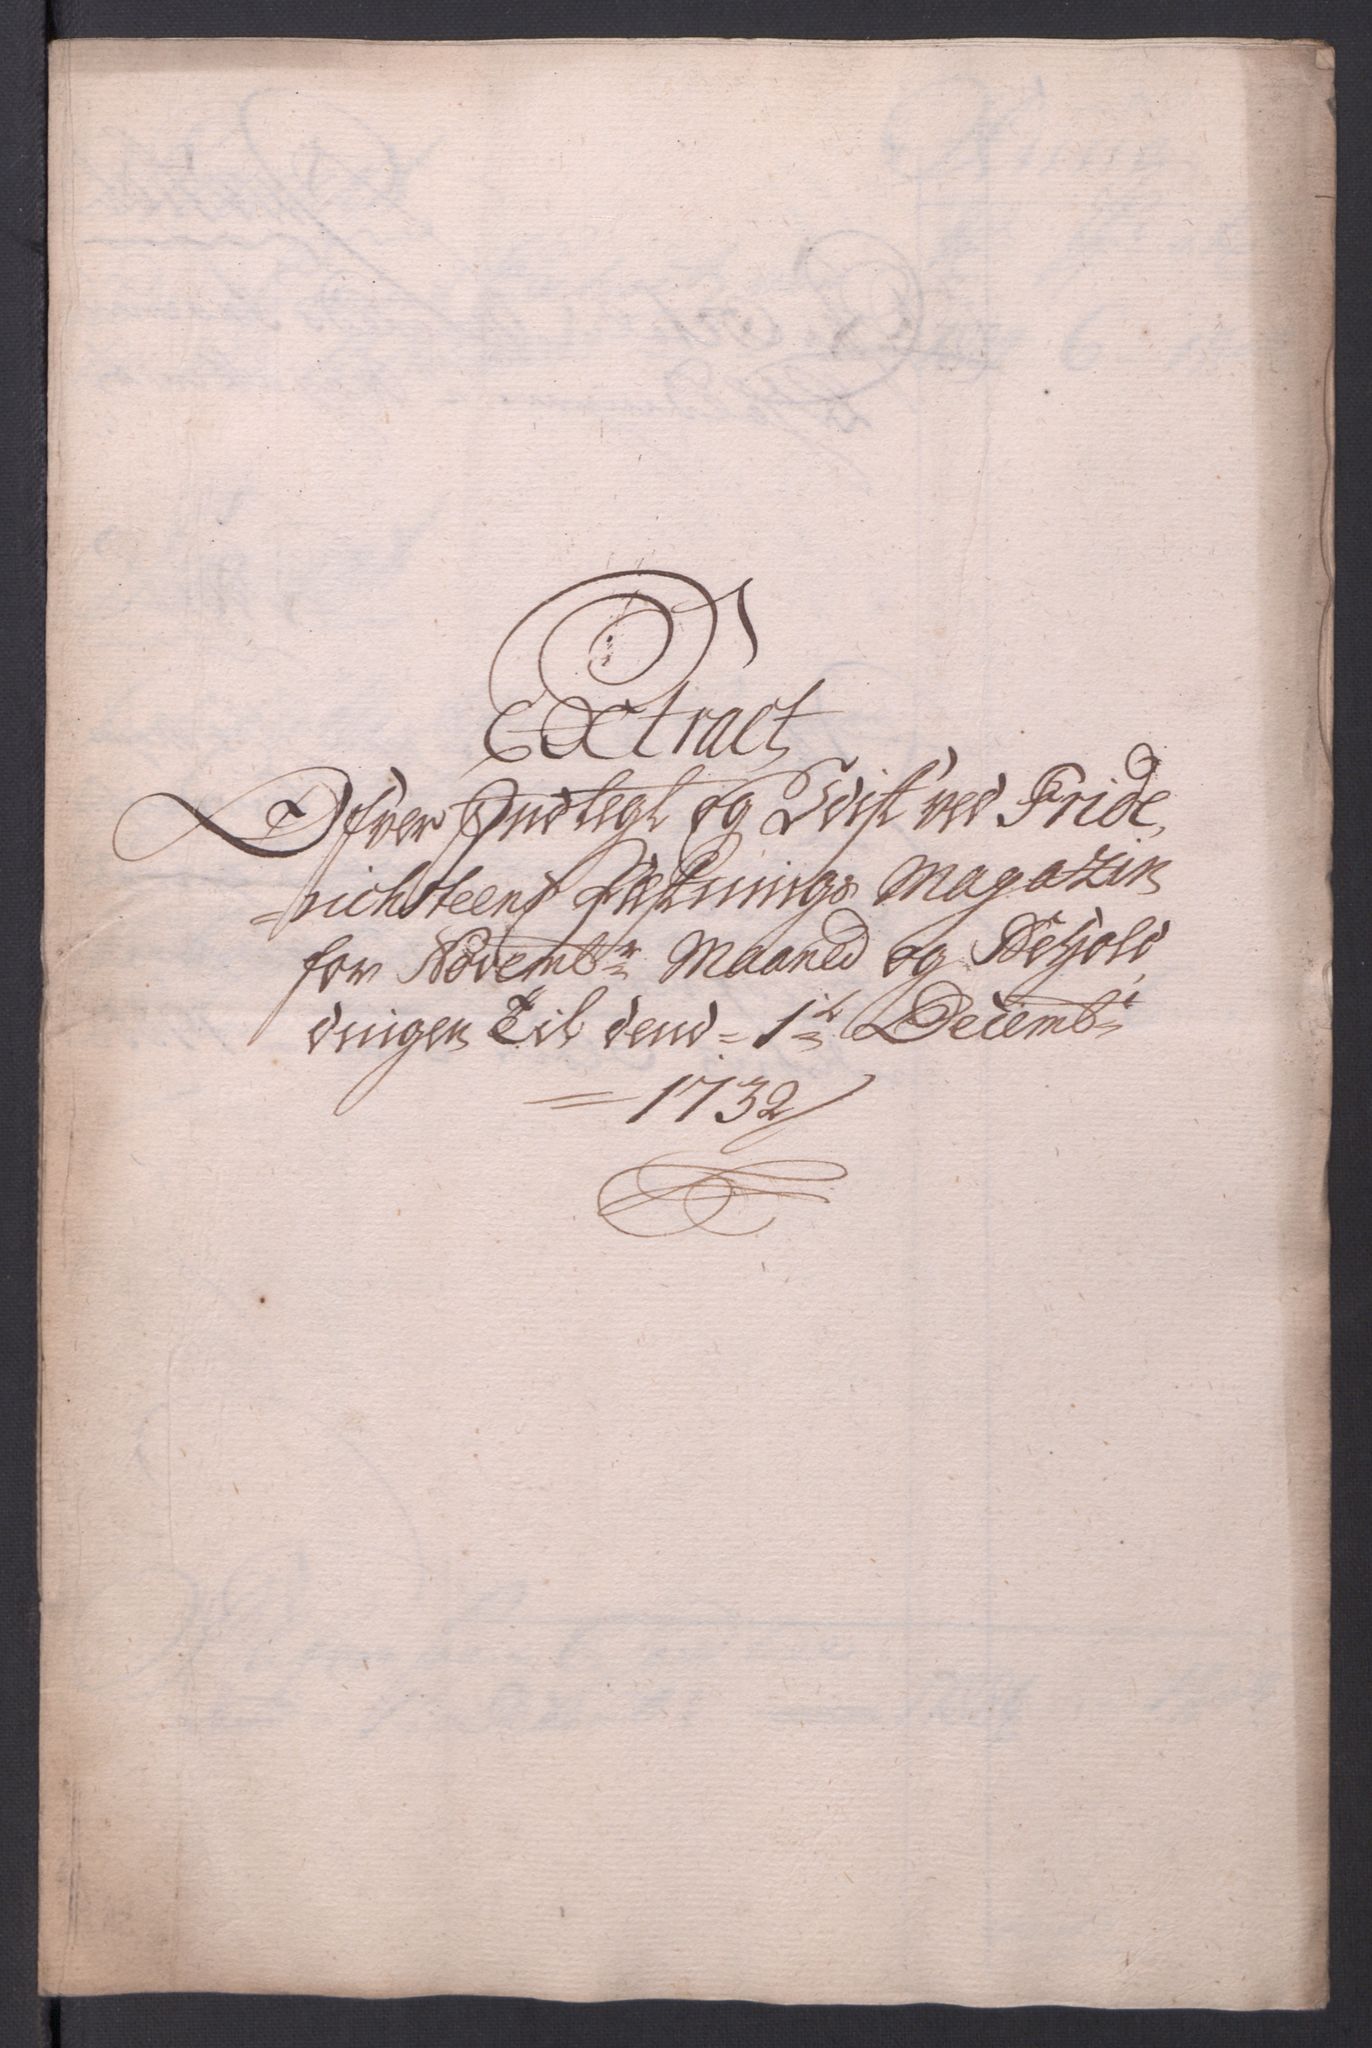 Extract
Ofver Indtegt og Udgift ved Fride,
=richsteens Fæstnings Magazin
for Novembr Maaned og Behold,
dningen Til dend = 1te Decembr
= 1732